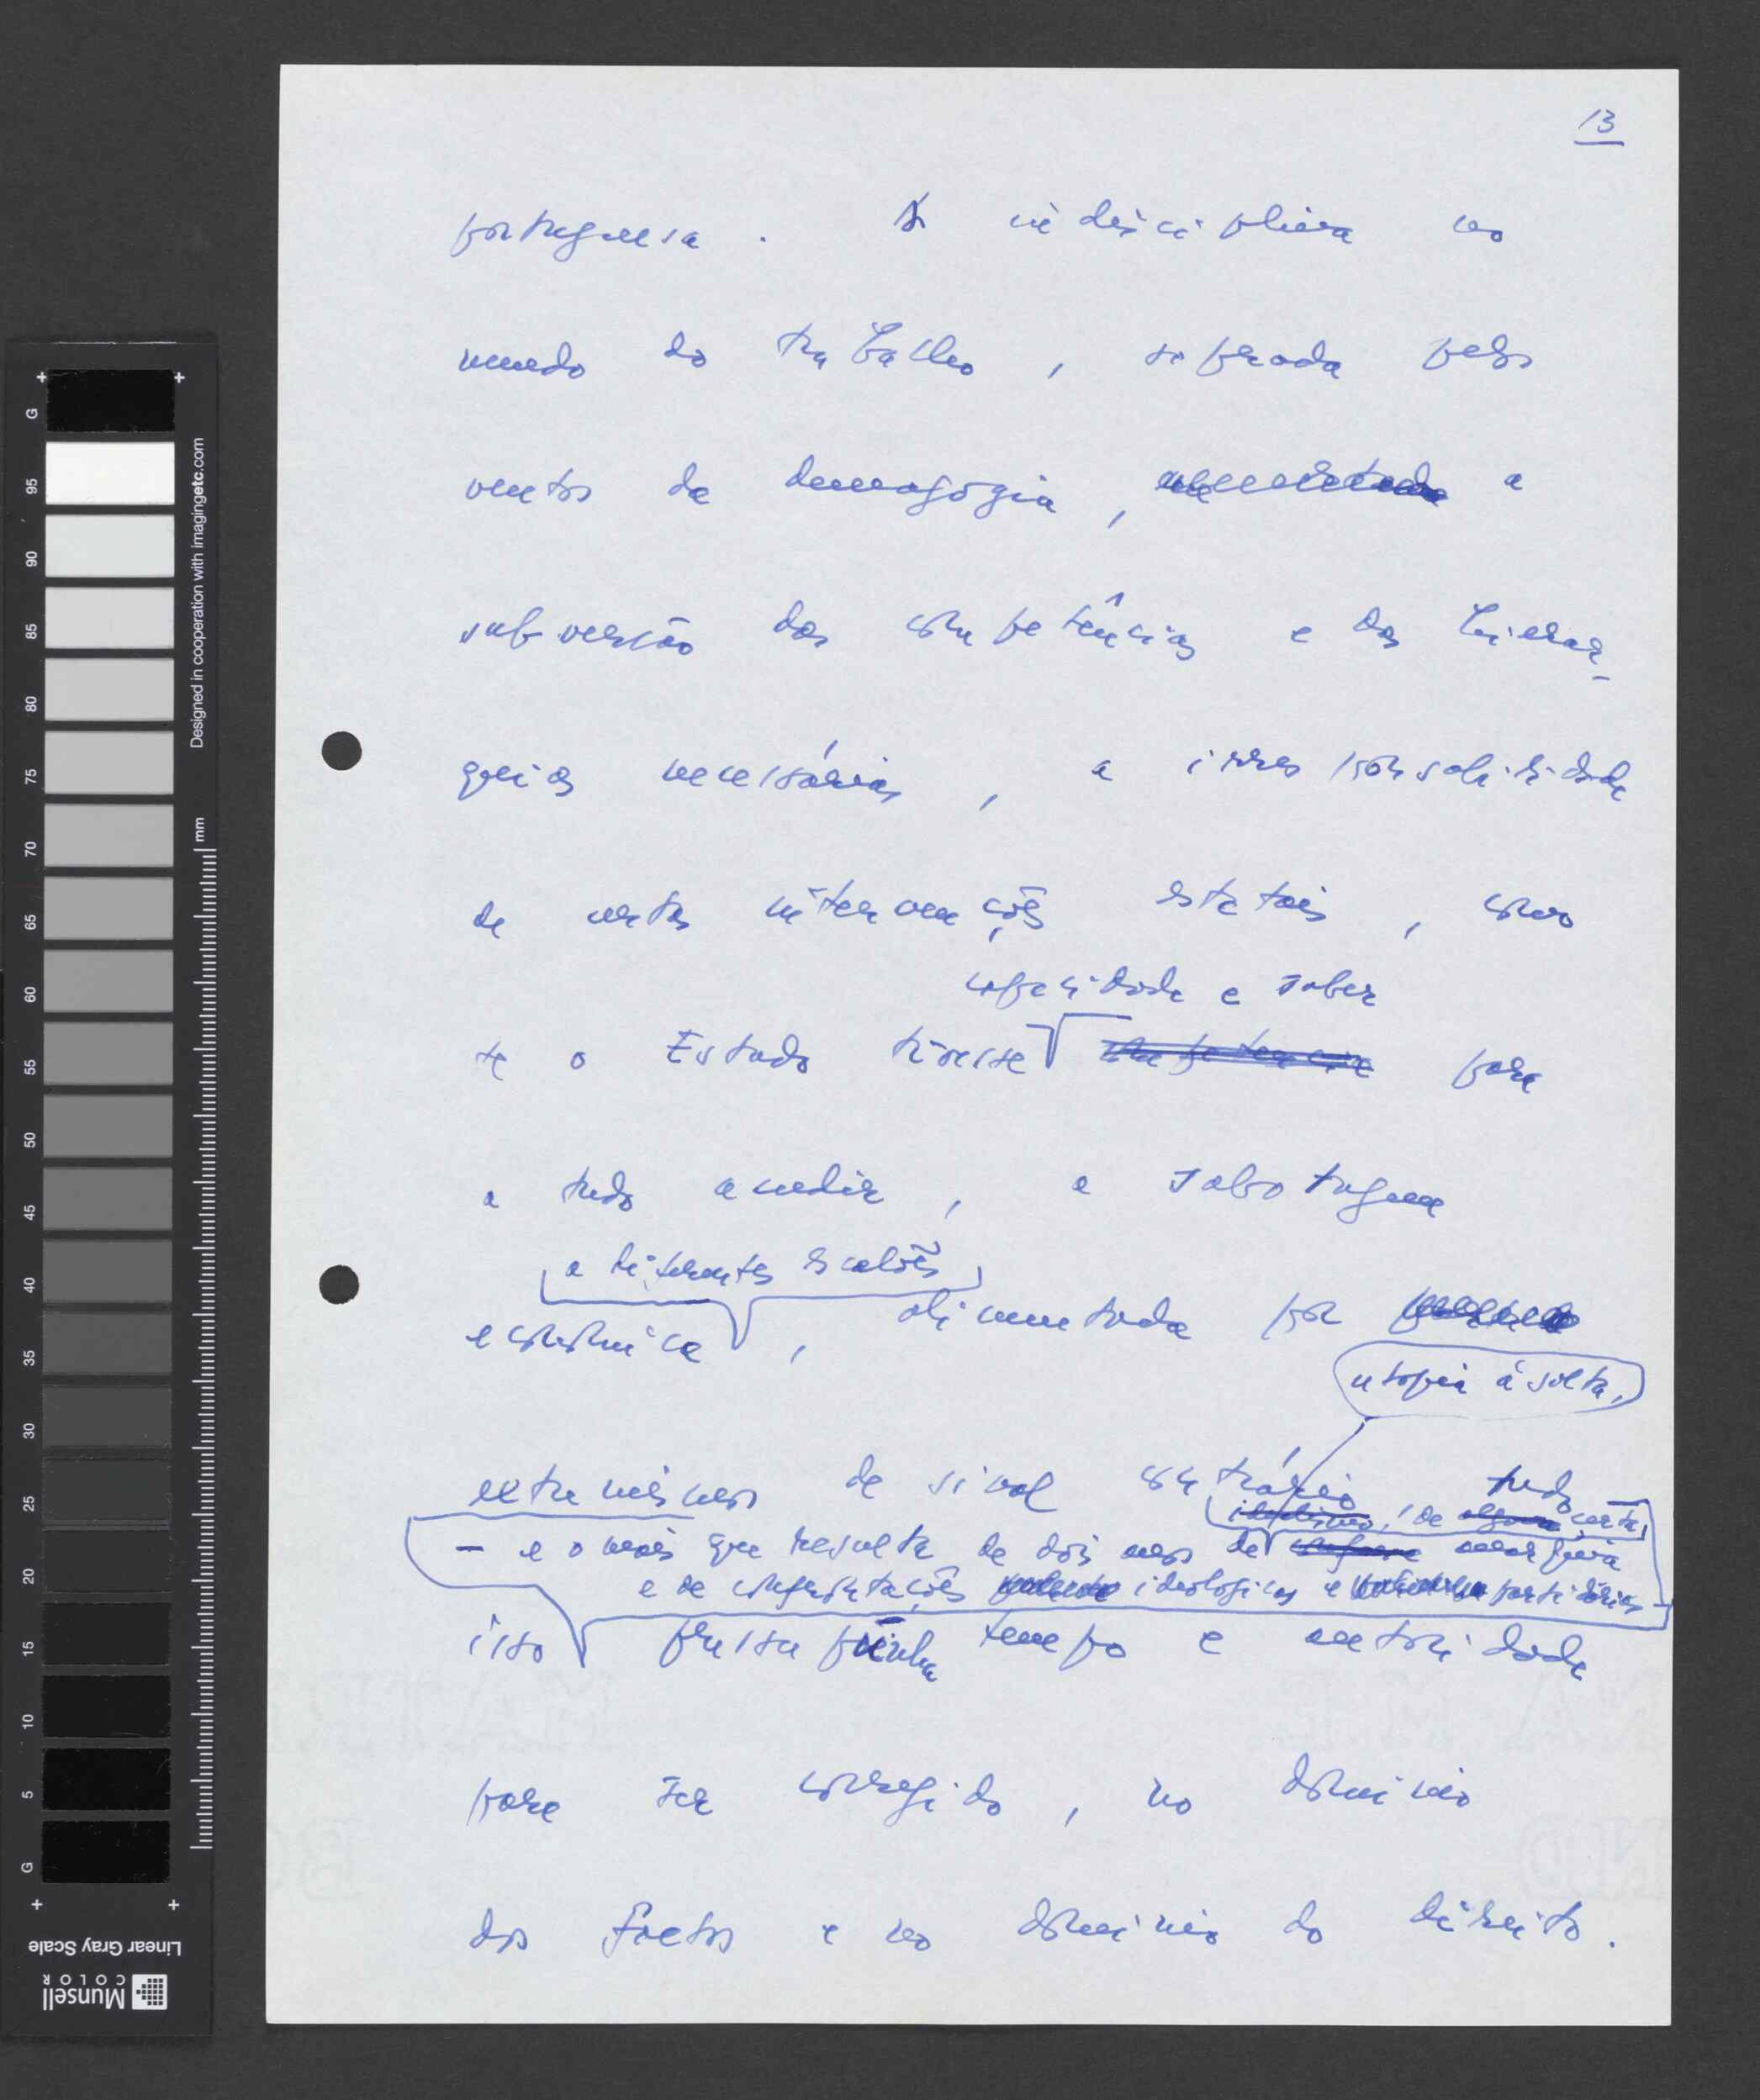 13
portuguesa. A indisciplina no
mundo do trabalho, soprada pelos
ventos da demagogia, a
subversão das competências e das hierar-
quias necessárias, a irresponsabilidade
de certas intervenções estatais, como
capacidade e saber
se o Estado tivesse competência para
a tudo acudir, a sabotagem
a diferentes escalões
económica, alimentada por
utopia à solta,
extremismos de sinal contrário tudo
idealismo, de alguma certa
- e o mais que resulta de dois anos de anarquia
e de confrontações ideologicas e partidárias -
isso pressupunha tempo e autoridade
para ser corrigido, no domínio
dos factos e no domínio do direito.
Designed in cooperation with imagingetc.com
mm
G
95
90
85
80
75
70
65
60
55
50
45
40
35
30
25
20
15
10
5
G
Linear Gray Scale
Munsell
COLOR